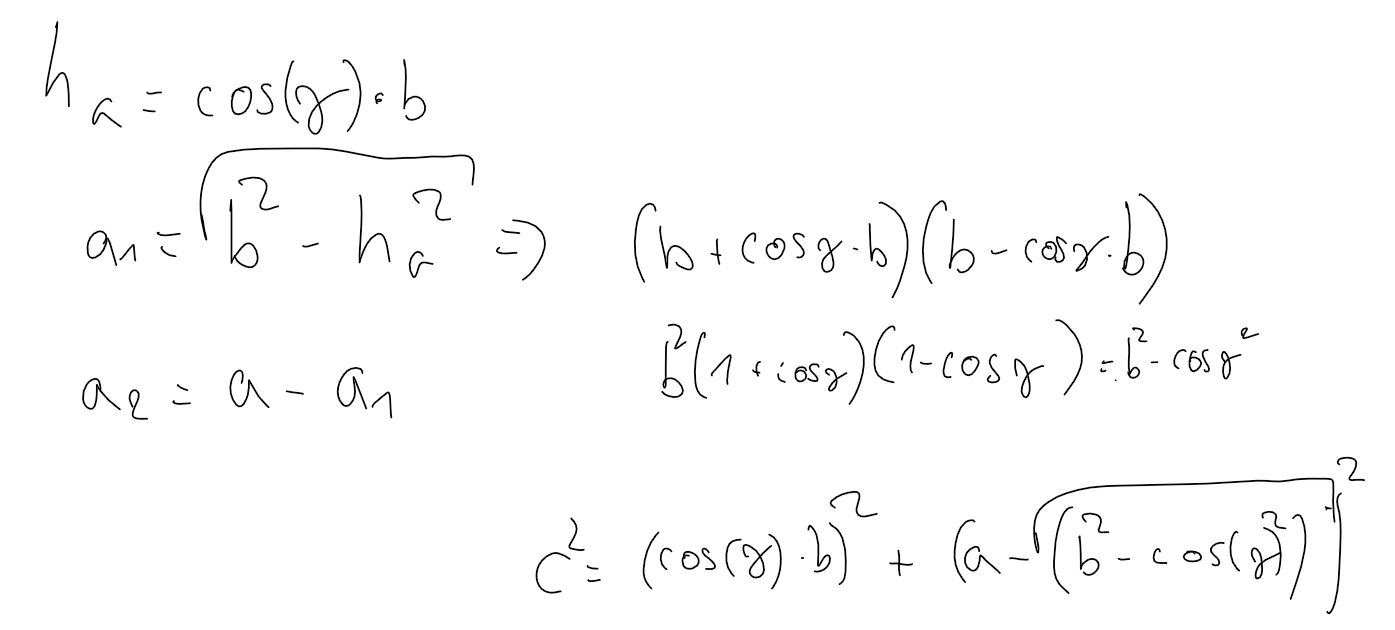 hₐ = cos(γ)·b
a₁ = √(b² - hₐ²) ⇒ (b + cosγ·b)(b - cosγ·b)
b²(1 + cosγ)(1 - cosγ) = b² - cosγ²
a₂ = a - a₁
c² = (cos(γ)·b)² + (a - √(b² - cos(γ)²))²